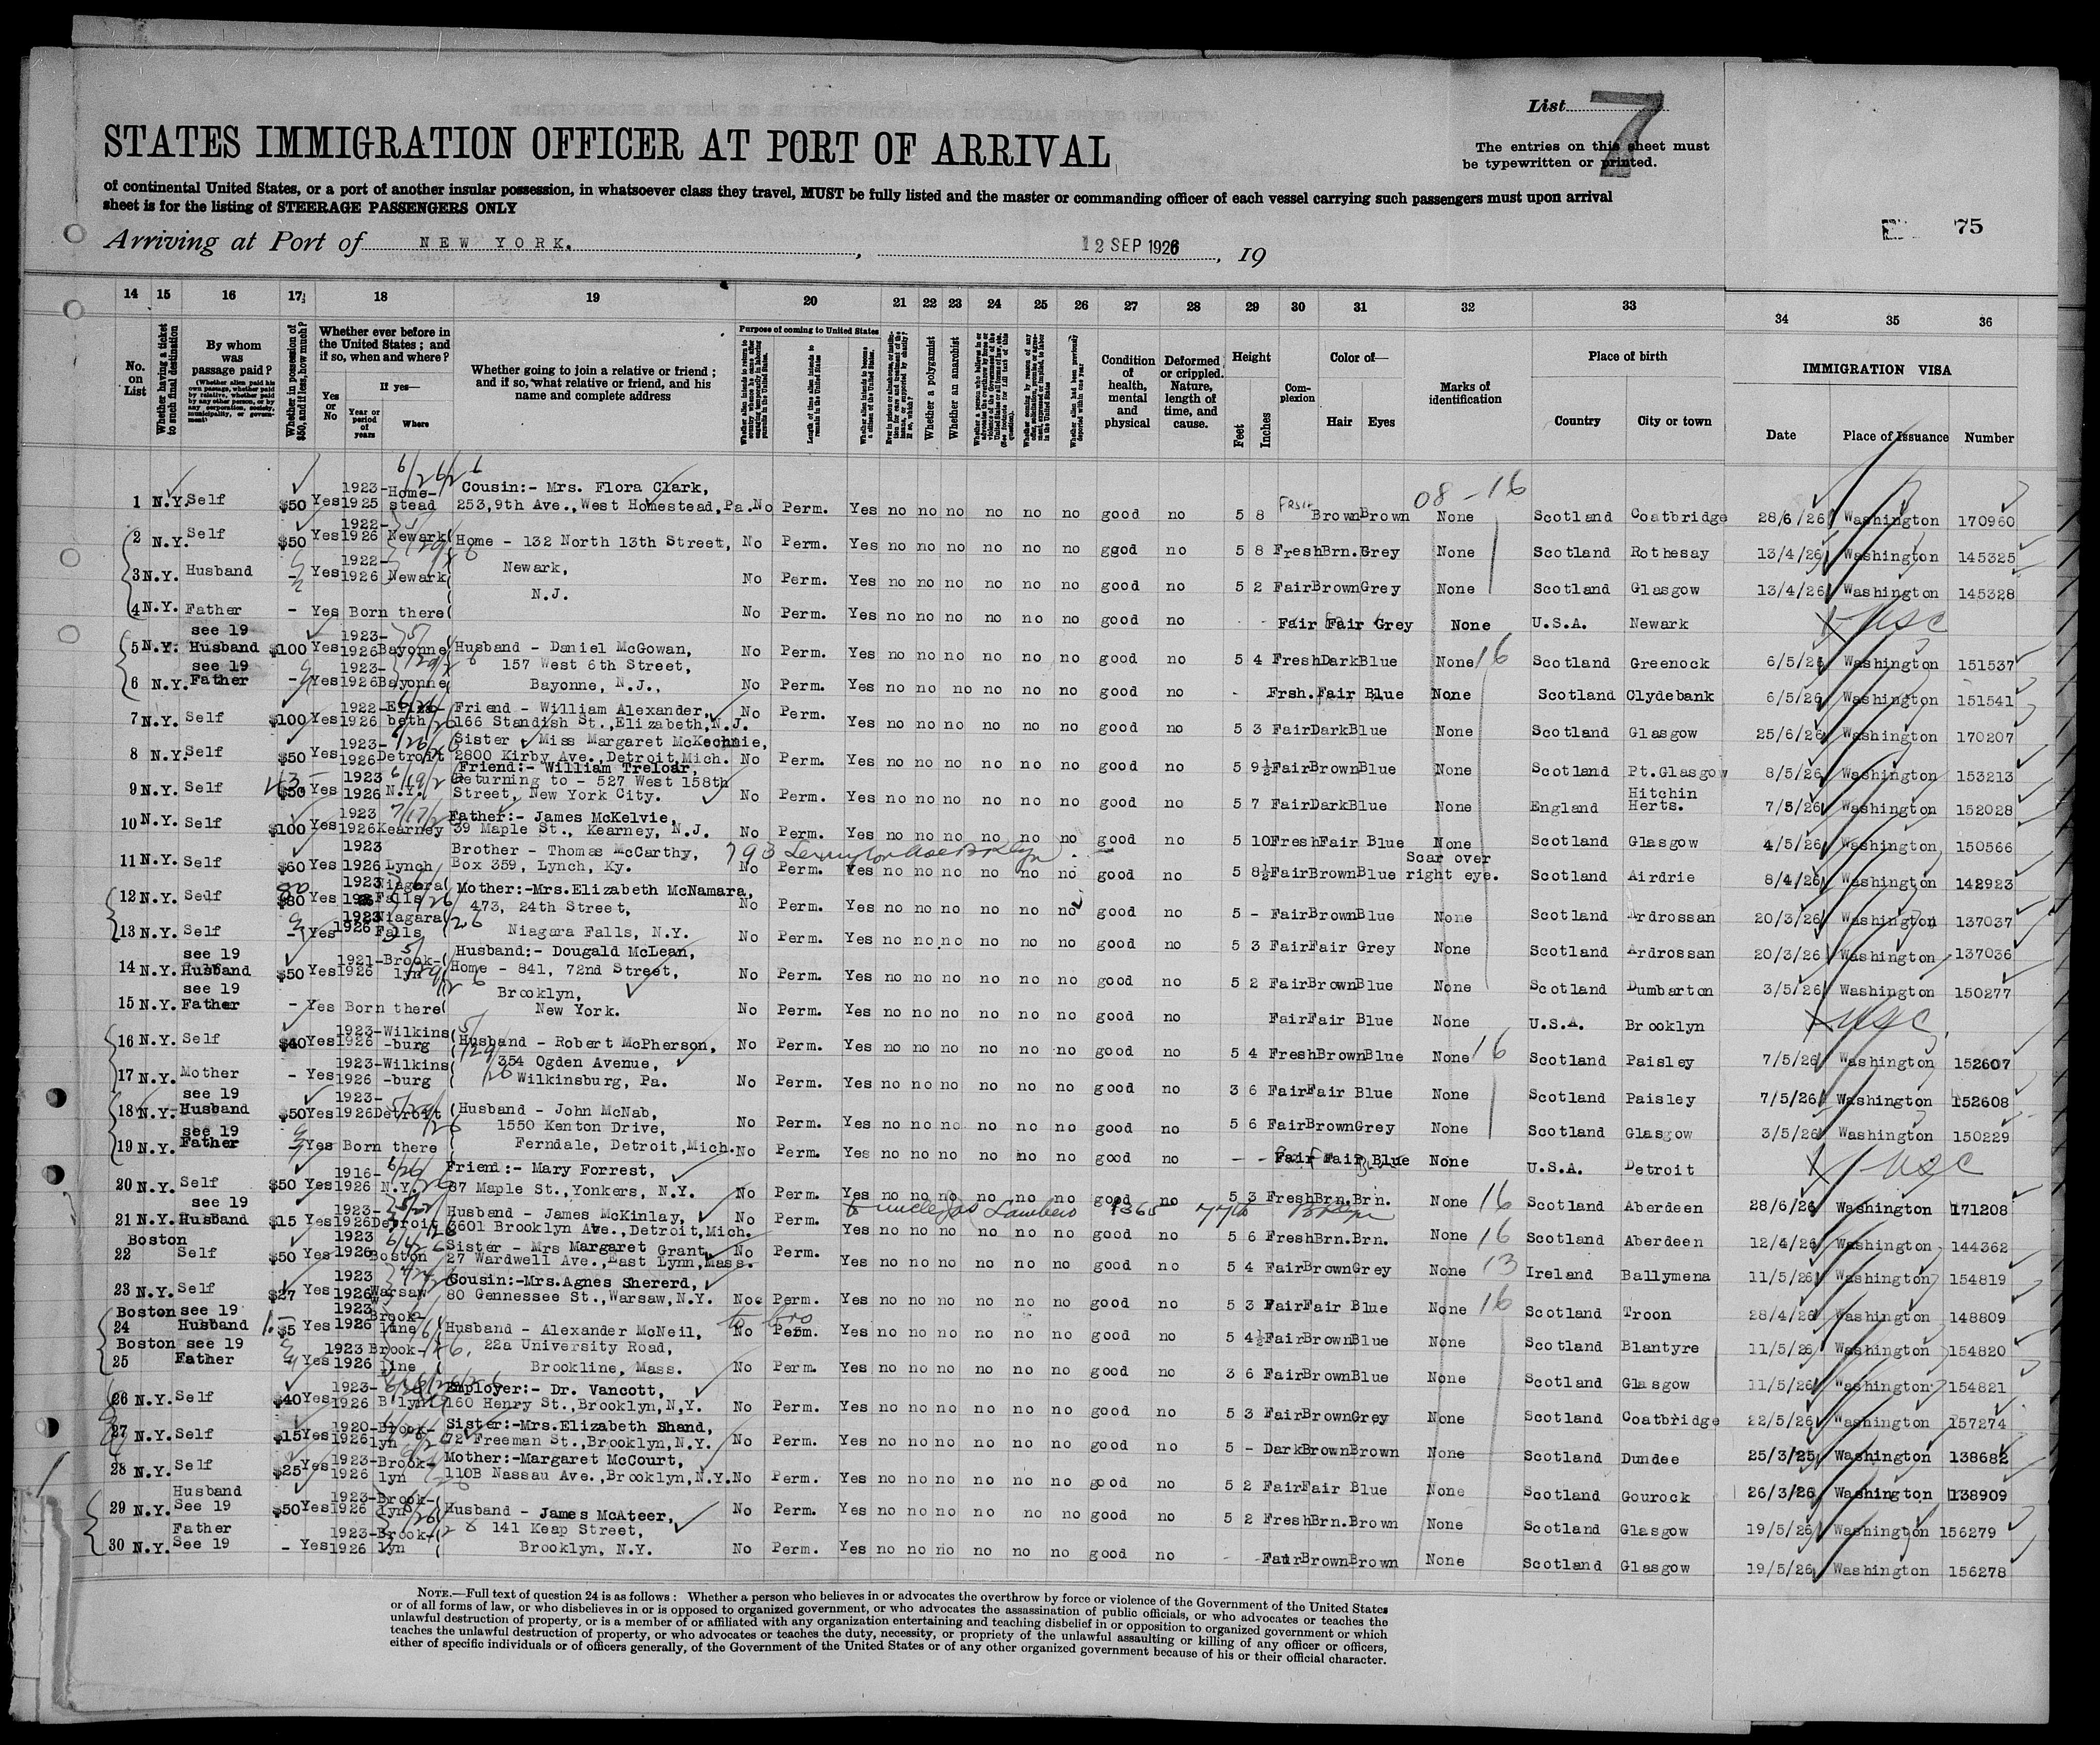 List 7
STATES IMMIGRATION OFFICER AT PORT OF ARRIVAL
The entries on this sheet must
be typewritten or printed.
of continental United States, or a port of another insular possession, in whatsoever class they travel, MUST be fully listed and the master or commanding officer of each vessel carrying such passengers must upon arrival
sheet is for the listing of STEERAGE PASSENGERS ONLY
75
Arriving at Port of NEW YORK. , 12 SEP 1926 , 19
14 15 16 17 18 19 20 21 22 23 24 25 26 27 28 29 30 31 32 33 34 35 36
No. on List
Whether having a ticket to such final destination
By whom was passage paid?
(Whether alien paid his own passage, whether paid by relative, whether paid by any other person, or by any corporation, society, municipality, or government)
Whether in possession of $50, and if less, how much?
Whether ever before in the United States; and if so, when and where?
If yes—
Yes or No
Year or period of years
Where
Whether going to join a relative or friend; and if so, what relative or friend, and his name and complete address
Purpose of coming to United States
Length of time alien intends to remain in the United States
Whether alien intends to become a citizen of the United States.
Whether a polygamist
Whether an anarchist
Condition of health, mental and physical
Deformed or crippled. Nature, length of time, and cause.
Height
Feet Inches
Complexion
Color of—
Hair Eyes
Marks of identification
Place of birth
Country City or town
IMMIGRATION VISA
Date Place of Issuance Number
1 N.Y. Self $50 Yes 1923-1925 Homestead Cousin:- Mrs. Flora Clark, 253,9th Ave.,West Homestead,Pa. No Perm. Yes no no no no no no good no 5 8 Brown Brown None Scotland Coatbridge 28/6/26 Washington 170960
08 - 16
2 N.Y. Self $50 Yes 1922-1926 Newark Home - 132 North 13th Street, No Perm. Yes no no no no no no good no 5 8 Fresh Brn. Grey None Scotland Rothesay 13/4/26 Washington 145325
3 N.Y. Husband - Yes 1922-1926 Newark Newark, No Perm. Yes no no no no no no good no 5 2 Fair Brown Grey None Scotland Glasgow 13/4/26 Washington 145328
N.J.
4 N.Y. Father - Yes Born there No Perm. Yes no no no no no no good no - - Fair Fair Grey None U.S.A. Newark USC
5 N.Y. see 19 Husband $100 Yes 1923-1926 Bayonne Husband - Daniel McGowan, No Perm. Yes no no no no no no good no 5 4 Fresh Dark Blue None 16 Scotland Greenock 6/5/26 Washington 151537
157 West 6th Street,
6 N.Y. see 19 Father - Yes 1923-1926 Bayonne Bayonne, N.J., No Perm. Yes no no no no no no good no - Frsh. Fair Blue None Scotland Clydebank 6/5/26 Washington 151541
7 N.Y. Self $100 Yes 1922-1926 Elizabeth Friend - William Alexander, 166 Standish St.,Elizabeth,N.J. No Perm. Yes no no no no no no good no 5 3 Fair Dark Blue None Scotland Glasgow 25/6/26 Washington 170207
8 N.Y. Self $50 Yes 1923-1926 Detroit Sister - Miss Margaret McKechnie, 2800 Kirby Ave.,Detroit,Mich. No Perm. Yes no no no no no no good no 5 9½ Fair Brown Blue None Scotland Pt.Glasgow 8/5/26 Washington 153213
9 N.Y. Self $50 Yes 1923 1926 N.Y. Friend:- William Treloar, Returning to - 527 West 158th Street, New York City. No Perm. Yes no no no no no no good no 5 7 Fair Dark Blue None England Hitchin Herts. 7/5/26 Washington 152028
10 N.Y. Self $100 Yes 1923 1926 Kearney Father:- James McKelvie, 39 Maple St., Kearney, N.J. No Perm. Yes no no no no no no good no 5 10 Fresh Fair Blue None Scotland Glasgow 4/5/26 Washington 150566
11 N.Y. Self $60 Yes 1923 1926 Lynch Brother - Thomas McCarthy, Box 359, Lynch, Ky. No Perm. Yes no no no no no no good no 5 8½ Fair Brown Blue Scar over right eye. Scotland Airdrie 8/4/26 Washington 142923
12 N.Y. Self $80 Yes 1923 Niagara Falls Mother:-Mrs.Elizabeth McNamara, No Perm. Yes no no no no no no good no 5 - Fair Brown Blue None Scotland Ardrossan 20/3/26 Washington 137037
473, 24th Street,
13 N.Y. Self - Yes 1923 1926 Niagara Falls Niagara Falls, N.Y. No Perm. Yes no no no no no no good no 5 3 Fair Fair Grey None Scotland Ardrossan 20/3/26 Washington 137036
14 N.Y. see 19 Husband $50 Yes 1921-1926 Brooklyn Husband:- Dougald McLean, Home - 841, 72nd Street, No Perm. Yes no no no no no no good no 5 2 Fair Brown Blue None Scotland Dumbarton 3/5/26 Washington 150277
Brooklyn,
15 N.Y. see 19 Father - Yes Born there New York. No Perm. Yes no no no no no no good no Fair Fair Blue None U.S.A. Brooklyn USC
16 N.Y. Self $40 Yes 1923-1926 Wilkins-burg Husband - Robert McPherson, No Perm. Yes no no no no no no good no 5 4 Fresh Brown Blue None 16 Scotland Paisley 7/5/26 Washington 152607
354 Ogden Avenue,
17 N.Y. Mother - Yes 1923-1926 Wilkins-burg Wilkinsburg, Pa. No Perm. Yes no no no no no no good no 3 6 Fair Fair Blue None Scotland Paisley 7/5/26 Washington 152608
18 N.Y. see 19 Husband $50 Yes 1923-1926 Detroit Husband - John McNab, No Perm. Yes no no no no no no good no 5 6 Fair Brown Grey None Scotland Glasgow 3/5/26 Washington 150229
1550 Kenton Drive,
19 N.Y. see 19 Father - Yes Born there Ferndale, Detroit,Mich. No Perm. Yes no no no no no no good no - - Fair Fair Blue None U.S.A. Detroit USC
20 N.Y. Self $50 Yes 1916-1926 N.Y. Friend:- Mary Forrest, 87 Maple St.,Yonkers, N.Y. No Perm. Yes no no no no no no good no 5 3 Fresh Brn. Brn. None 16 Scotland Aberdeen 28/6/26 Washington 171208
21 N.Y. see 19 Husband $15 Yes 1923-1926 Detroit Husband - James McKinlay, 3601 Brooklyn Ave.,Detroit,Mich. No Perm. Yes no no no no no no good no 5 6 Fresh Brn. Brn. None 16 Scotland Aberdeen 12/4/26 Washington 144362
22 Boston Self $50 Yes 1923 1926 Boston Sister - Mrs Margaret Grant, 27 Wardwell Ave.,East Lynn,Mass. No Perm. Yes no no no no no no good no 5 4 Fair Brown Grey None 13 Ireland Ballymena 11/5/26 Washington 154819
23 N.Y. Self $27 Yes 1923 1926 Warsaw Cousin:-Mrs.Agnes Shererd, 80 Gennessee St.,Warsaw,N.Y. No. Perm. Yes no no no no no no good no 5 3 Fair Fair Blue None 16 Scotland Troon 28/4/26 Washington 148809
24 Boston see 19 Husband $5 Yes 1923 1926 Brookline Husband - Alexander McNeil, No Perm. Yes no no no no no no good no 5 4½ Fair Brown Blue None Scotland Blantyre 11/5/26 Washington 154820
22a University Road,
25 Boston see 19 Father - Yes 1923 1926 Brookline Brookline, Mass. No Perm. Yes no no no no no no good no 3 6 Fair Brown Blue None Scotland Glasgow 11/5/26 Washington 154821
26 N.Y. Self $40 Yes 1923-1926 B'lyn Employer:- Dr. Vancott, 160 Henry St.,Brooklyn,N.Y. No Perm. Yes no no no no no no good no 5 3 Fair Brown Grey None Scotland Coatbridge 22/5/26 Washington 157274
27 N.Y. Self $15 Yes 1920-1926 Brooklyn Sister:-Mrs.Elizabeth Shand, 72 Freeman St.,Brooklyn,N.Y. No Perm. Yes no no no no no no good no 5 - Dark Brown Brown None Scotland Dundee 25/3/25 Washington 138682
28 N.Y. Self $25 Yes 1923-1926 Brooklyn Mother:-Margaret McCourt, 110B Nassau Ave.,Brooklyn,N.Y. No Perm. Yes no no no no no no good no 5 2 Fair Fair Blue None Scotland Gourock 26/3/26 Washington 138909
29 N.Y. Husband See 19 $50 Yes 1923-1926 Brooklyn Husband - James McAteer, No Perm. Yes no no no no no no good no 5 2 Fresh Brn. Brown None Scotland Glasgow 19/5/26 Washington 156279
141 Keap Street,
30 N.Y. Father See 19 - Yes 1923-1926 Brooklyn Brooklyn, N.Y. No Perm. Yes no no no no no no good no - - Fair Brown Brown None Scotland Glasgow 19/5/26 Washington 156278
NOTE.—Full text of question 24 is as follows: Whether a person who believes in or advocates the overthrow by force or violence of the Government of the United States
or of all forms of law, or who disbelieves in or is opposed to organized government, or who advocates the assassination of public officials, or who advocates or teaches the
unlawful destruction of property, or is a member of or affiliated with any organization entertaining and teaching disbelief in or opposition to organized government or which
teaches the unlawful destruction of property, or who advocates or teaches the duty, necessity, or propriety of the unlawful assaulting or killing of any officer or officers,
either of specific individuals or of officers generally, of the Government of the United States or of any other organized government because of his or their official character.